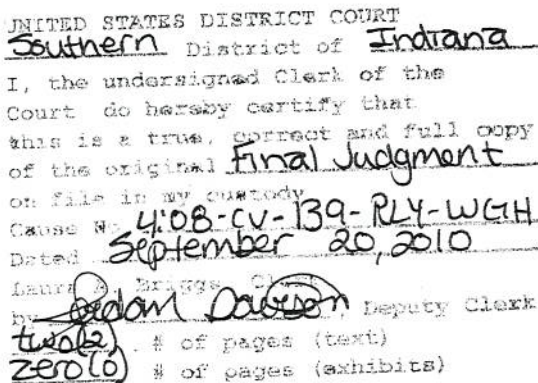 UNITED STATES DISTRICT COURT
Southern District of Indiana
I, the undersigned Clerk of the
Court do hereby certify that
this is a true, correct and full copy
of the original Final Judgment
on file in my custody
Cause No. 4:08-CV-139-RLY-WGH
Dated September 20, 2010
Laura A. Briggs, Clerk
by Dawson, Deputy Clerk
two(2) # of pages (text)
zero(0) # of pages (exhibits)